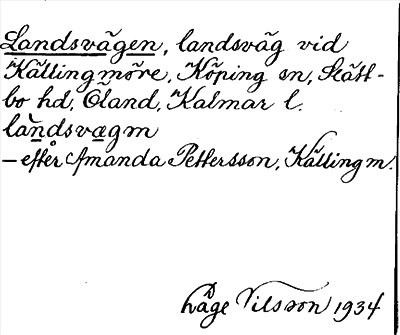 Landsvägen, landsväg vid
Källingmöre, Köping sn, Slätt-
bo hd, Öland, Kalmar l.
làndsvagm
– efter Amanda Pettersson, Källingm.
Håge Nilsson 1934